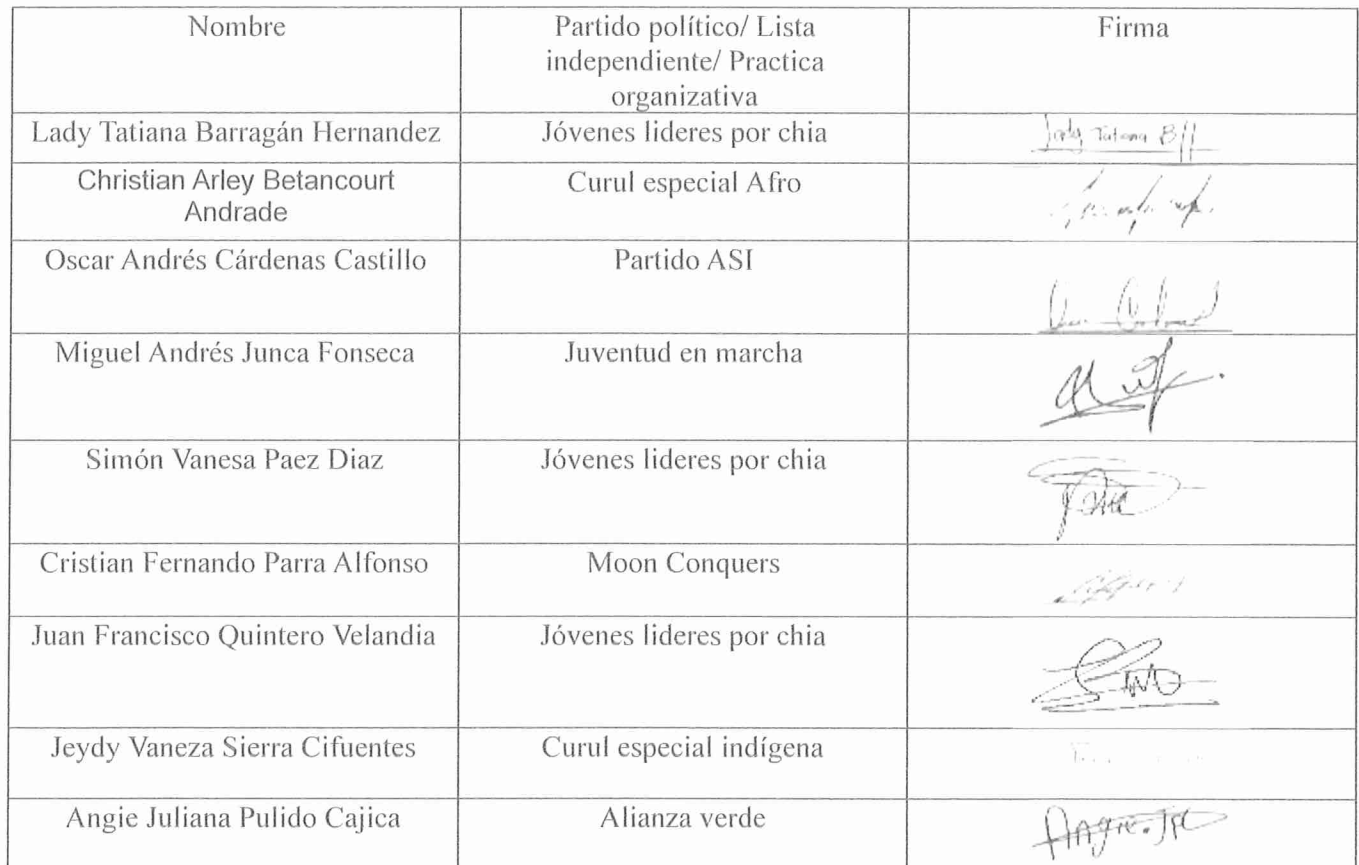 Nombre
Partido político/ Lista
independiente/ Practica
organizativa
Firma
Lady Tatiana Barragán Hernandez
Jóvenes lideres por chia
Lady Tatiana B
Christian Arley Betancourt
Andrade
Curul especial Afro
Oscar Andrés Cárdenas Castillo
Partido ASI
Miguel Andrés Junca Fonseca
Juventud en marcha
Simón Vanesa Paez Diaz
Jóvenes lideres por chia
Cristian Fernando Parra Alfonso
Moon Conquers
Juan Francisco Quintero Velandia
Jóvenes lideres por chia
Jeydy Vaneza Sierra Cifuentes
Curul especial indígena
Angie Juliana Pulido Cajica
Alianza verde
Angie.JPC